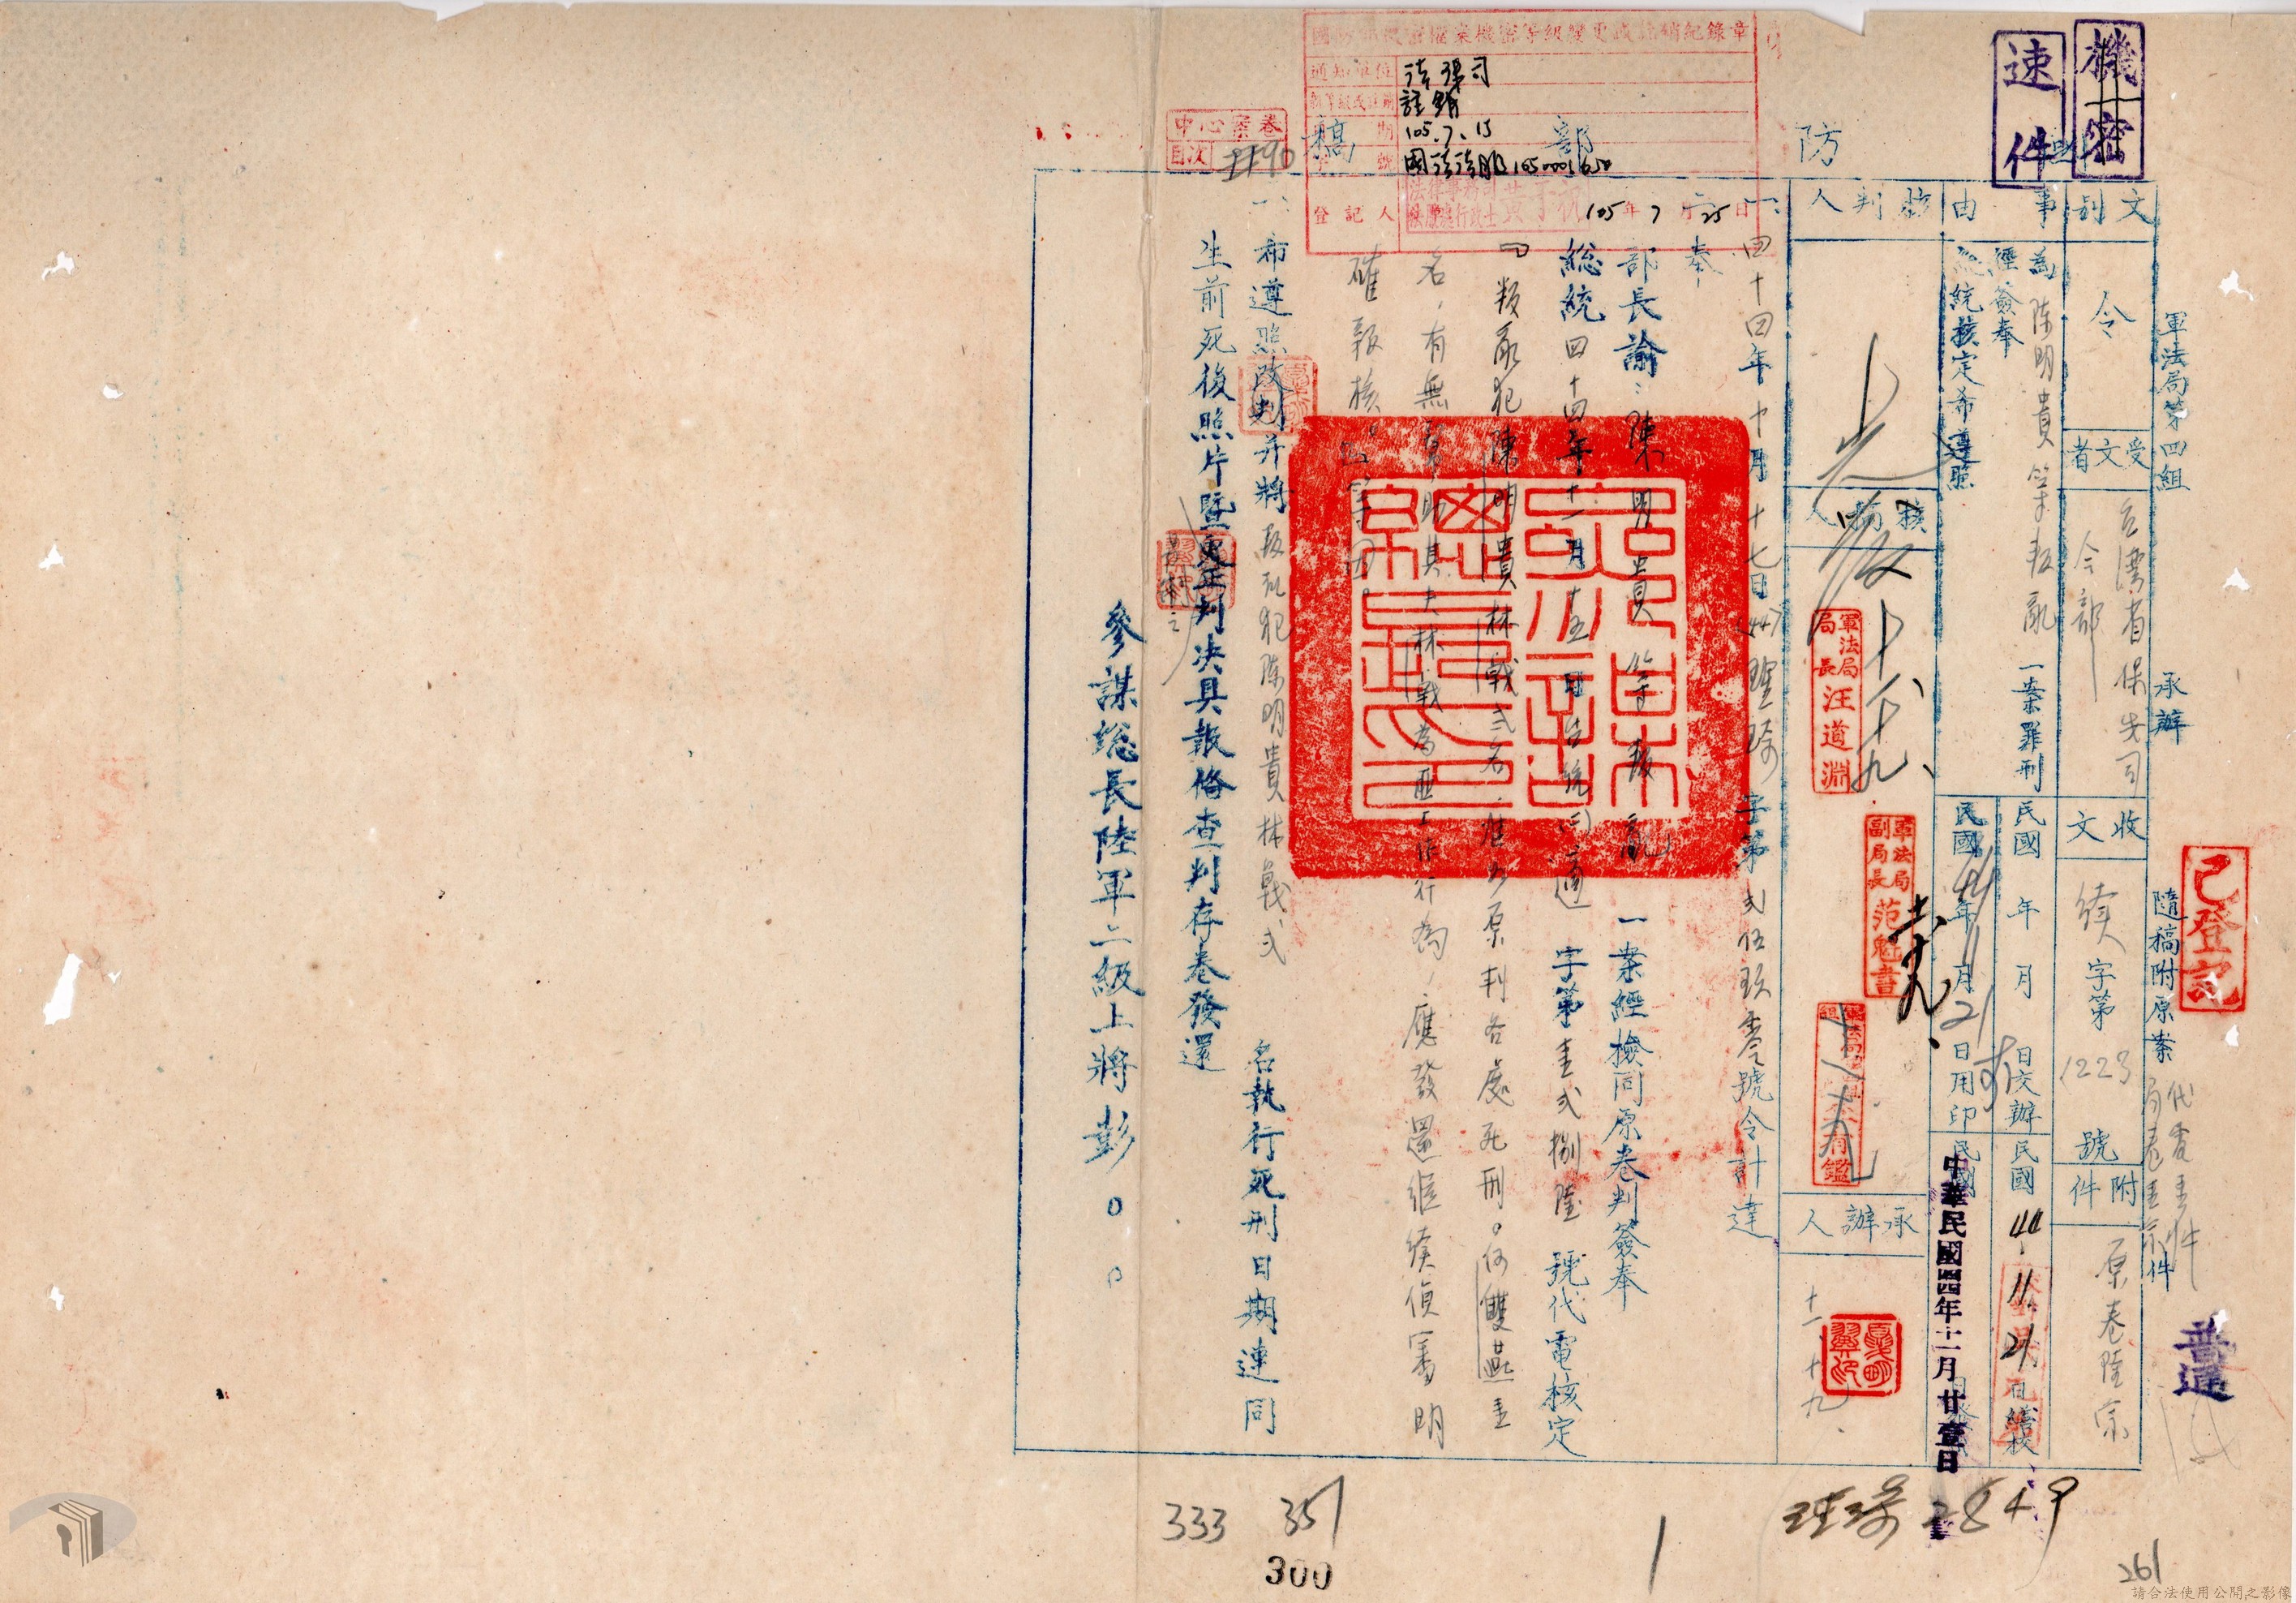 機密
速件
國防部稿
軍法局第四組
承辦
隨稿附原案
件
已登記
普通
文別
令
受文者
台灣省保安司令部
收文
續字第1223號
附件
原卷陸宗
事由
為陳明貴等叛亂一案罪刑
經簽奉
總統核定希遵照
民國 年 月 日交辦
民國44年11月21日用印
民國44.11.21日繕校
中華民國四四年十一月廿壹日
判人
核稿人
軍法局局長汪道淵
軍法局副局長范魁書
承辦人
十一、十九
一、四十四年十月十七日(44)理琦字第弍伍玖零號令計達
二、奉
部長諭：陳明貴等叛亂一案經檢同原卷判簽奉
總統四十四年十一月十五日台統(二)適字第壹弍捌陸號代電核定
「叛亂犯陳明貴林戟弍名，准如原判各處死刑。何雙燕壹
名，有無幫助其夫林戟為匪工作行為，應發還繼續偵審明
確報核。」等因。
三、希遵照改判并將叛亂犯陳明貴林戟弍名執行死刑日期連同
生前死後照片暨更正判決具報俻查判存卷發還
參謀總長陸軍二級上將彭○○
中心案卷
目次
通知單位
法律司
註銷
期
105.7.13
號
登記人
105年7月25日
理琦2849
333
351
300
261
請合法使用公開之影像